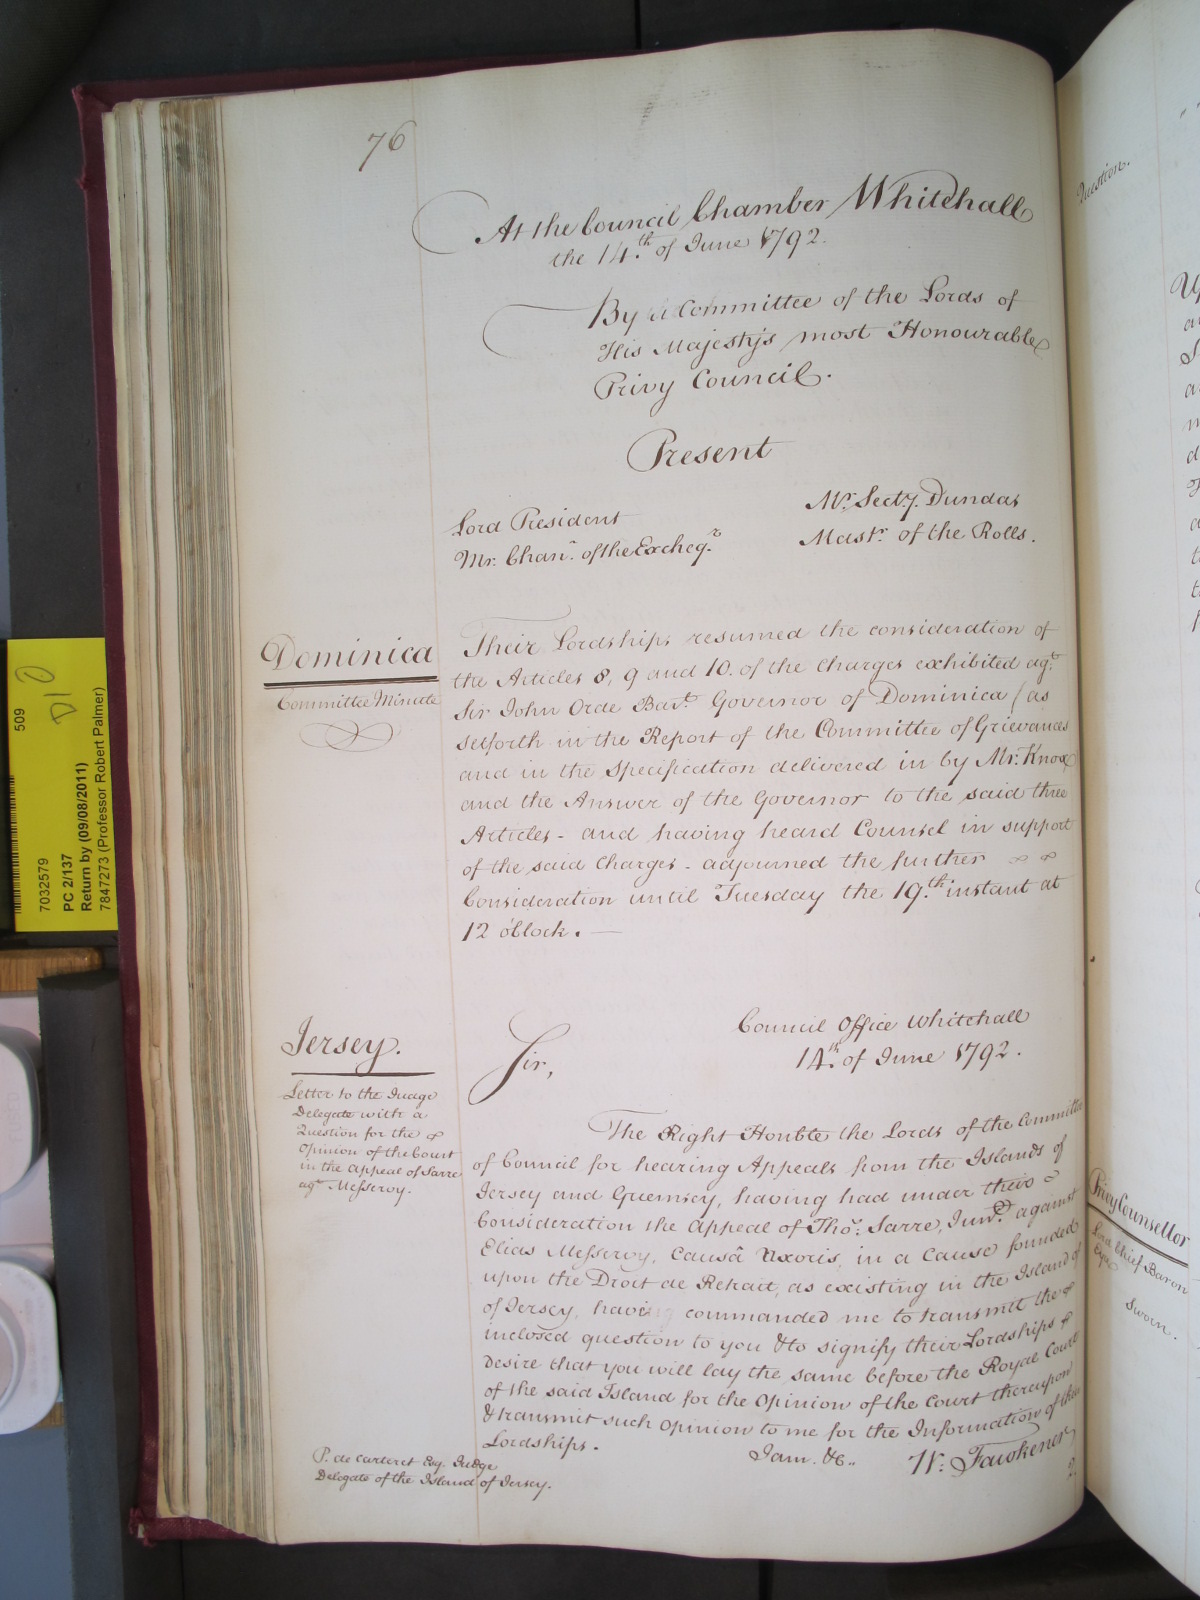 76
At the Council Chamber Whitehall
the 14.th of June 1792.
By a Committee of the Lords of
His Majesty's most Honourable
Privy Council.
Present
Lord President
Mr. Chanr. of the Excheqr.
Mr. Secty. Dundas
Mastr. of the Rolls.
Dominica
Committee Minute
Their Lordships resumed the consideration of
the Articles 8, 9 and 10. of the Charges exhibited agt.
Sir John Orde Bart. Governor of Dominica (as
setforth in the Report of the Committee of Grievances
and in the Specification delivered in by Mr. Knox
and the Answer of the Governor to the said three
Articles - and having heard Counsel in support
of the said Charges - adjourned the further
Consideration until Tuesday the 19.th instant at
12 o'Clock. —
Jersey.
Letter to the Judge
Delegate with a
Question for the
Opinion of the Court
in the Appeal of Sarre
agt. Messervy.
Council Office Whitehall
14.th of June 1792.
Sir,
The Right Honble the Lords of the Committee
of Council for hearing Appeals from the Islands of
Jersey and Guernsey, having had under their
Consideration the Appeal of Thos. Sarre, Junr. against
Elias Messervy, Causâ Uxoris, in a Cause founded
upon the Droit de Retrait, as existing in the Island of
of Jersey, having commanded me to transmit the
inclosed question to you & to signify their Lordships
desire that you will lay the same before the Royal Court
of the said Island for the Opinion of the Court thereupon
& transmit such Opinion to me for the Information of their
Lordships.
I am. &c..
W: Fawkener
P. de Carteret Esq. Judge
Delegate of the Island of Jersey.
Question.
Privy Counsellor
Lord Chief Baron
Eyre
Sworn.
509
D10
7032579
PC 2/137
Return by (09/08/2011)
7847273 (Professor Robert Palmer)